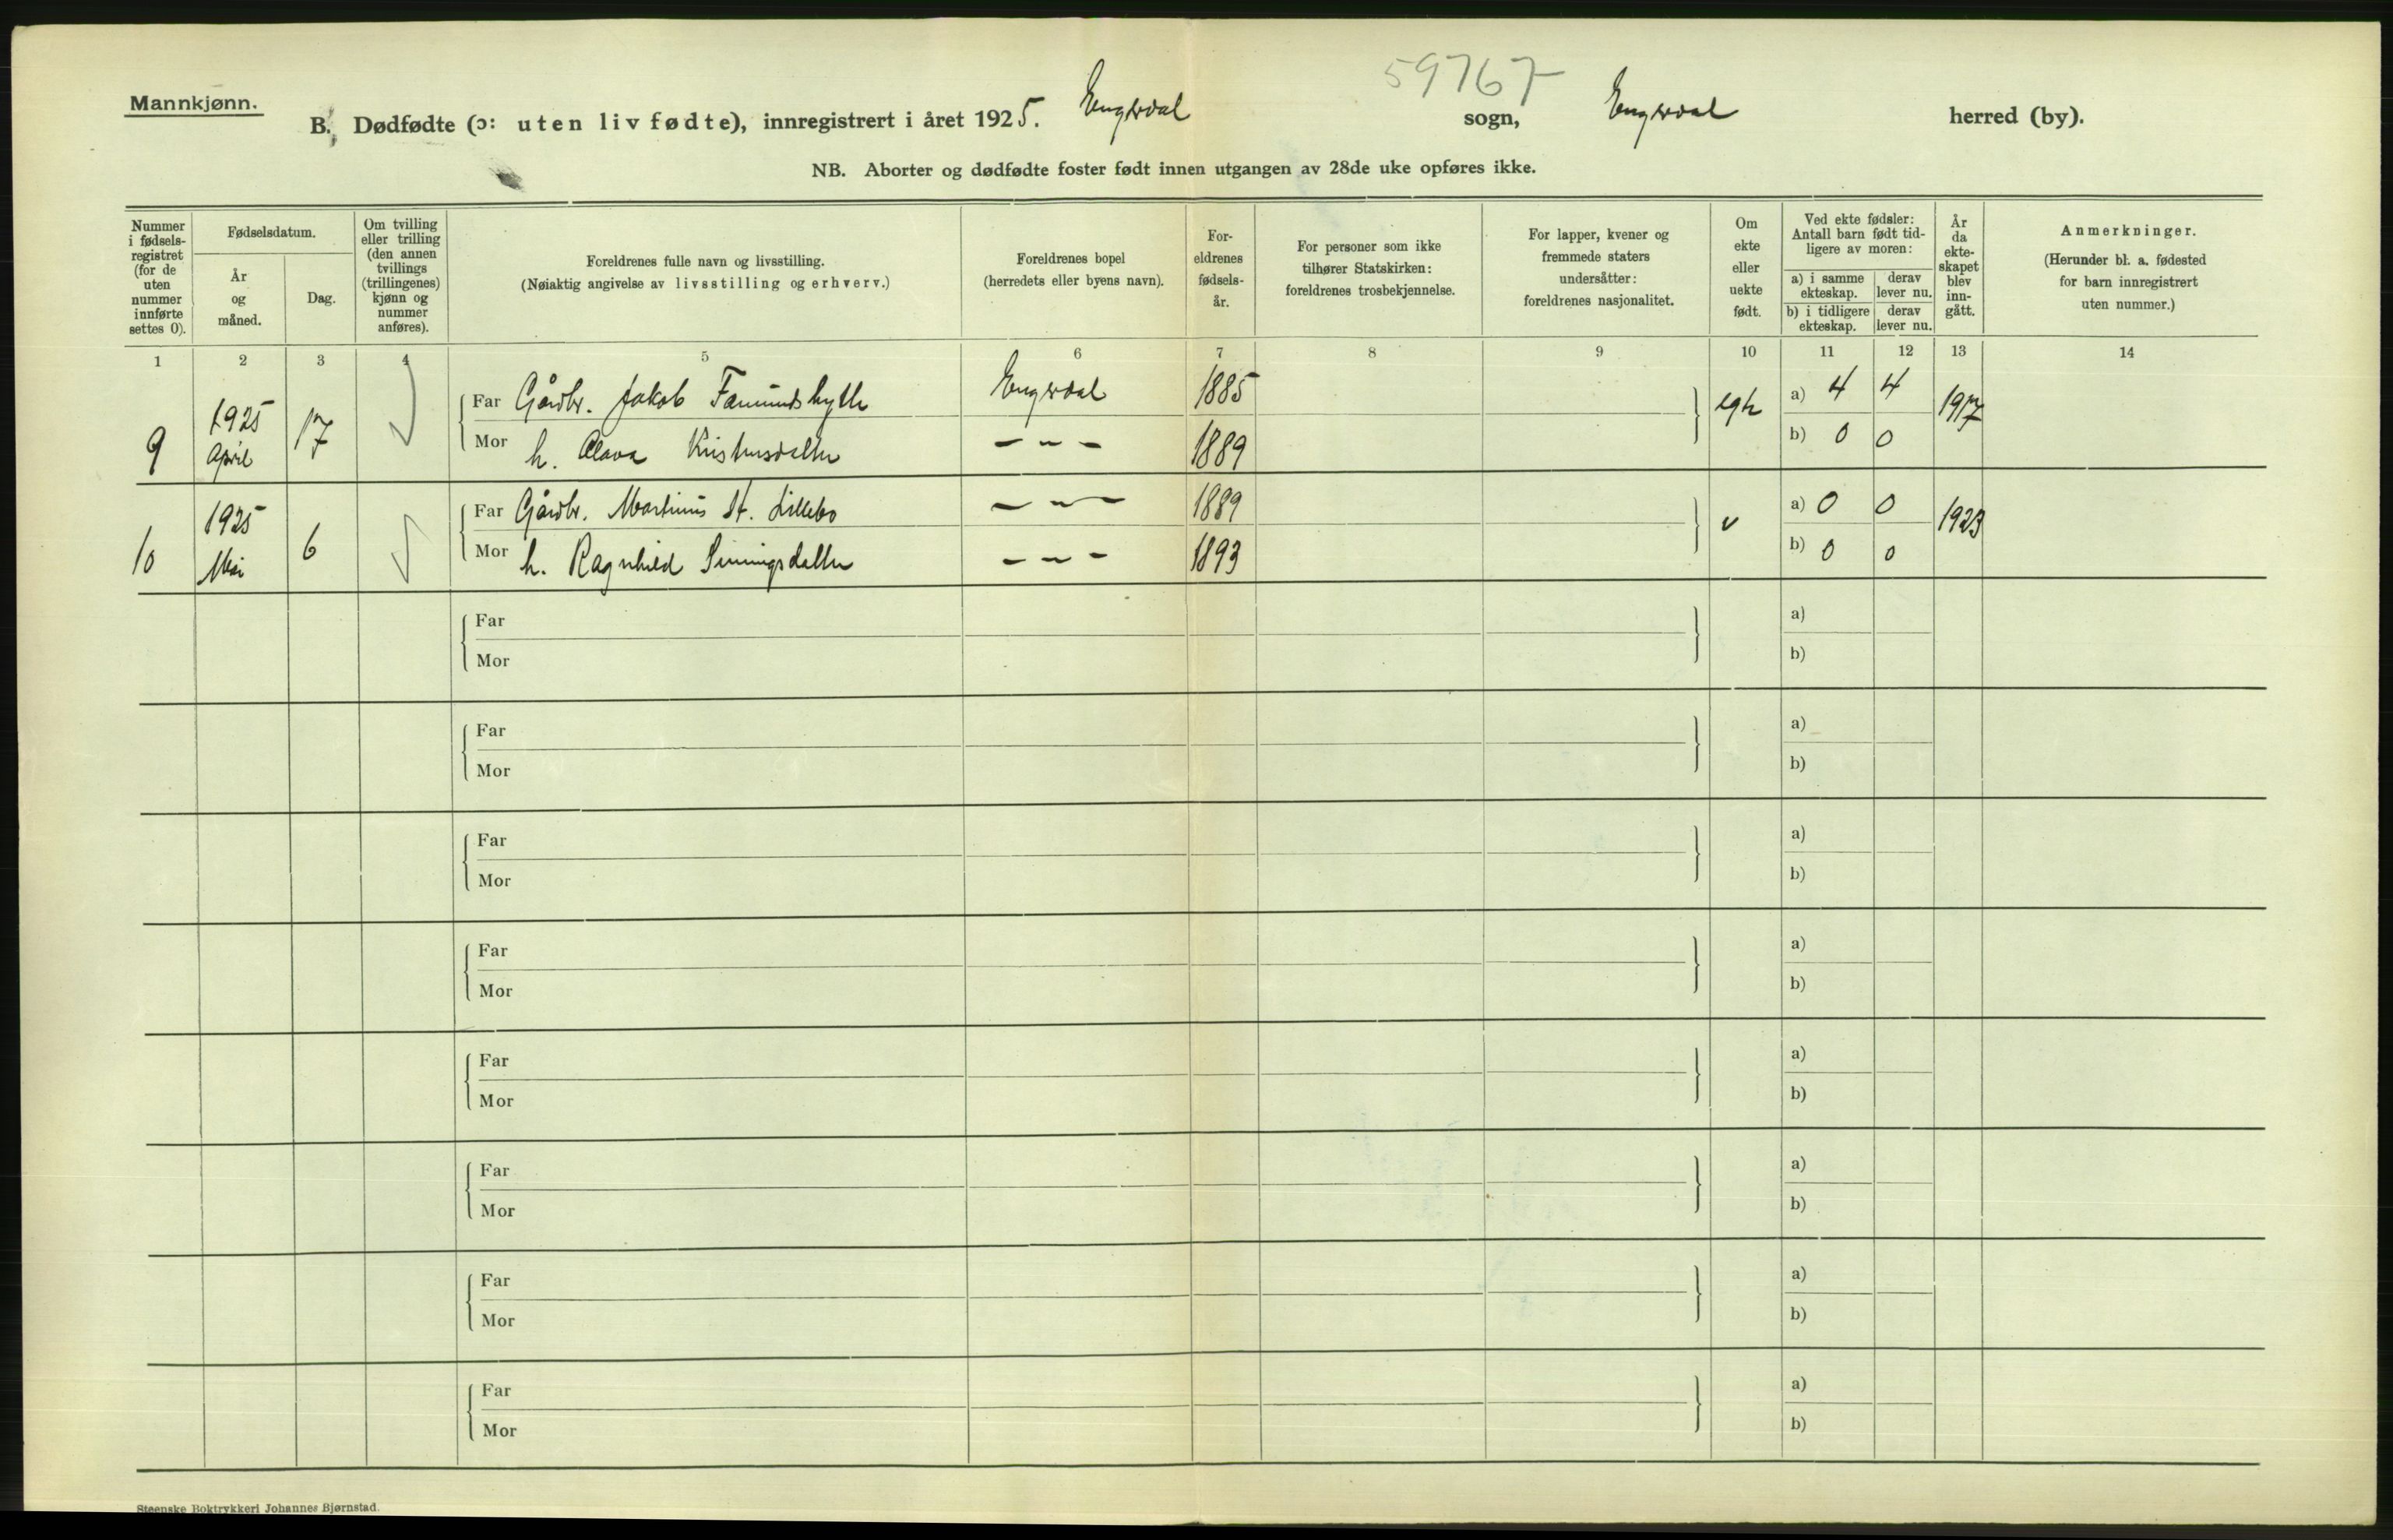 59767
Mannkjønn.
B. Dødfødte (ɔ: uten liv fødte), innregistrert i året 1925. Engerdal sogn, Engerdal herred (by).
NB. Aborter og dødfødte foster født innen utgangen av 28de uke opføres ikke.
Nummer i fødsels-registret (for de uten nummer innførte settes 0).
Fødselsdatum.
År og måned.
Dag.
Om tvilling eller trilling (den annen tvillings (trillingenes) kjønn og nummer anføres).
Foreldrenes fulle navn og livsstilling.
(Nøiaktig angivelse av livsstilling og erhverv.)
Foreldrenes bopel
(herredets eller byens navn).
For-eldrenes fødsels-år.
For personer som ikke tilhører Statskirken: foreldrenes trosbekjennelse.
For lapper, kvener og fremmede staters undersåtter: foreldrenes nasjonalitet.
Om ekte eller uekte født.
Ved ekte fødsler: Antall barn født tid-ligere av moren:
a) i samme ekteskap.
derav lever nu.
b) i tidligere ekteskap.
derav lever nu.
År da ekte-skapet blev inn-gått.
Anmerkninger.
(Herunder bl. a. fødested for barn innregistrert uten nummer.)
1 2 3 4 5 6 7 8 9 10 11 12 13 14
9 1925 April 17 Far Gårdbr. Jakob Femundshytte Engerdal 1885 egte a) 4 4 1917
Mor h. Olava Kristensdatter — " — 1889 b) 0 0
10 1925 Mai 6 Far Gårdbr. Martinus St. Lillebo — " — 1889 v a) 0 0 1923
Mor h. Ragnhild — " — 1893 b) 0 0
Far a)
Mor b)
Far a)
Mor b)
Far a)
Mor b)
Far a)
Mor b)
Far a)
Mor b)
Far a)
Mor b)
Far a)
Mor b)
Far a)
Mor b)
Steenske Boktrykkeri Johannes Bjørnstad.